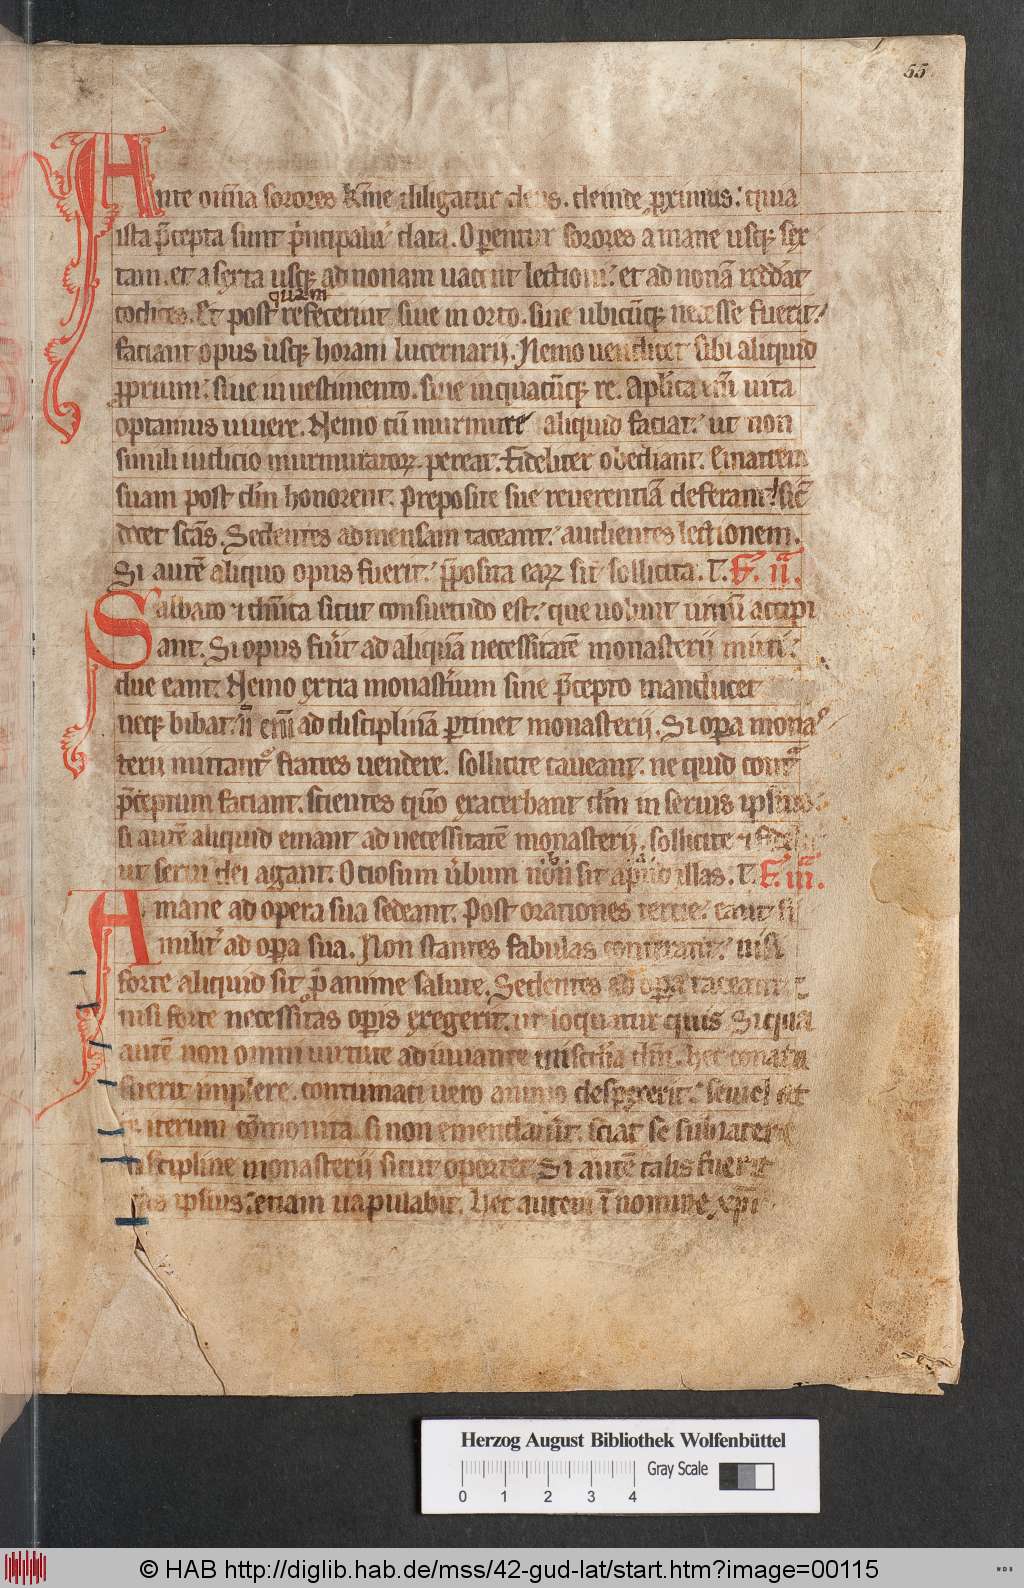 55
Ante om̄ia sorores k̄me diligatur deus. deinde ꝓximus: quia
ista p̄cepta sunt p̍ncipalit̍ data. Oꝑentur sorores a mane usq; sex
tam. et a sexta usq; ad nonam uacent lectioni: et ad nonā reddāt
quam
codices. Et post refecerint siue in orto. siue ubicūq; necesse fuerit:
faciant opus usq; horam lucernarij. Nemo uendicet sibi aliquid
ꝓprium: siue in uestimento. siue in quacūq; re. Apl̄ica eni̅ uita
optamus uiuere. Nemo cū murmure aliquid faciat: ut non
simili iudicio murmuratoꝝ pereat. Fideliter obediant.
suam post dm̄ honorent. Preposite sue reuerentiā deferant: sic̄
decet scās. Sedentes ad mensam taceant: audientes lectionem.
Si autē aliquo opus fuerit: p̄posita eaꝝ sit sollicita.
Sabbato ⁊ dn̄ica sicut consuetudo est: que uolunt uinū accipi
ant. Si opus fu̍it ad aliquā necessitatē monasterij mitti:
due eant. Nemo extra monast̍ium sine p̄cepto manducet
neq; bibat: n̄ eni̅ ad disciplinā ꝑtinet monasterij. Si oꝑa monas
terij mittant̍ fratres uendere. sollicite caueant. ne quid cont̄
p̄ceptum faciant. scientes quō exacerbant dm̄ in seruis ipsius:
si autē aliquid emant ad necessitatē monasterij. sollicite ⁊ fideli
ut serui dei agant. Otiosum u̍bum sit apud illas.
A mane ad opera sua sedeant. Post orationes tercie: eant si
milit̍ ad oꝑa sua. Non stantes fabulas conferant: nisi
forte aliquid sit p̄ anime salute. Sedentes ad oꝑa taceant:
nisi forte necessitas oꝑis exegerit. ut loquatur quis. Si qua
autē non omni uirtute adiuuante dm̄. hec conata
fuerit implere. contumaci uero animo despexerit: semel at
iterum cōmonita. si non emendau̍it. sciat se subiacere
discipline monasterij sicut oportet. Si autē talis fuerit
etas ipsius: etiam uapulabit. Hec autem ī nomine xp̄i
Herzog August Bibliothek Wolfenbüttel
Gray Scale
0 1 2 3 4
© HAB http://diglib.hab.de/mss/42-gud-lat/start.htm?image=00115